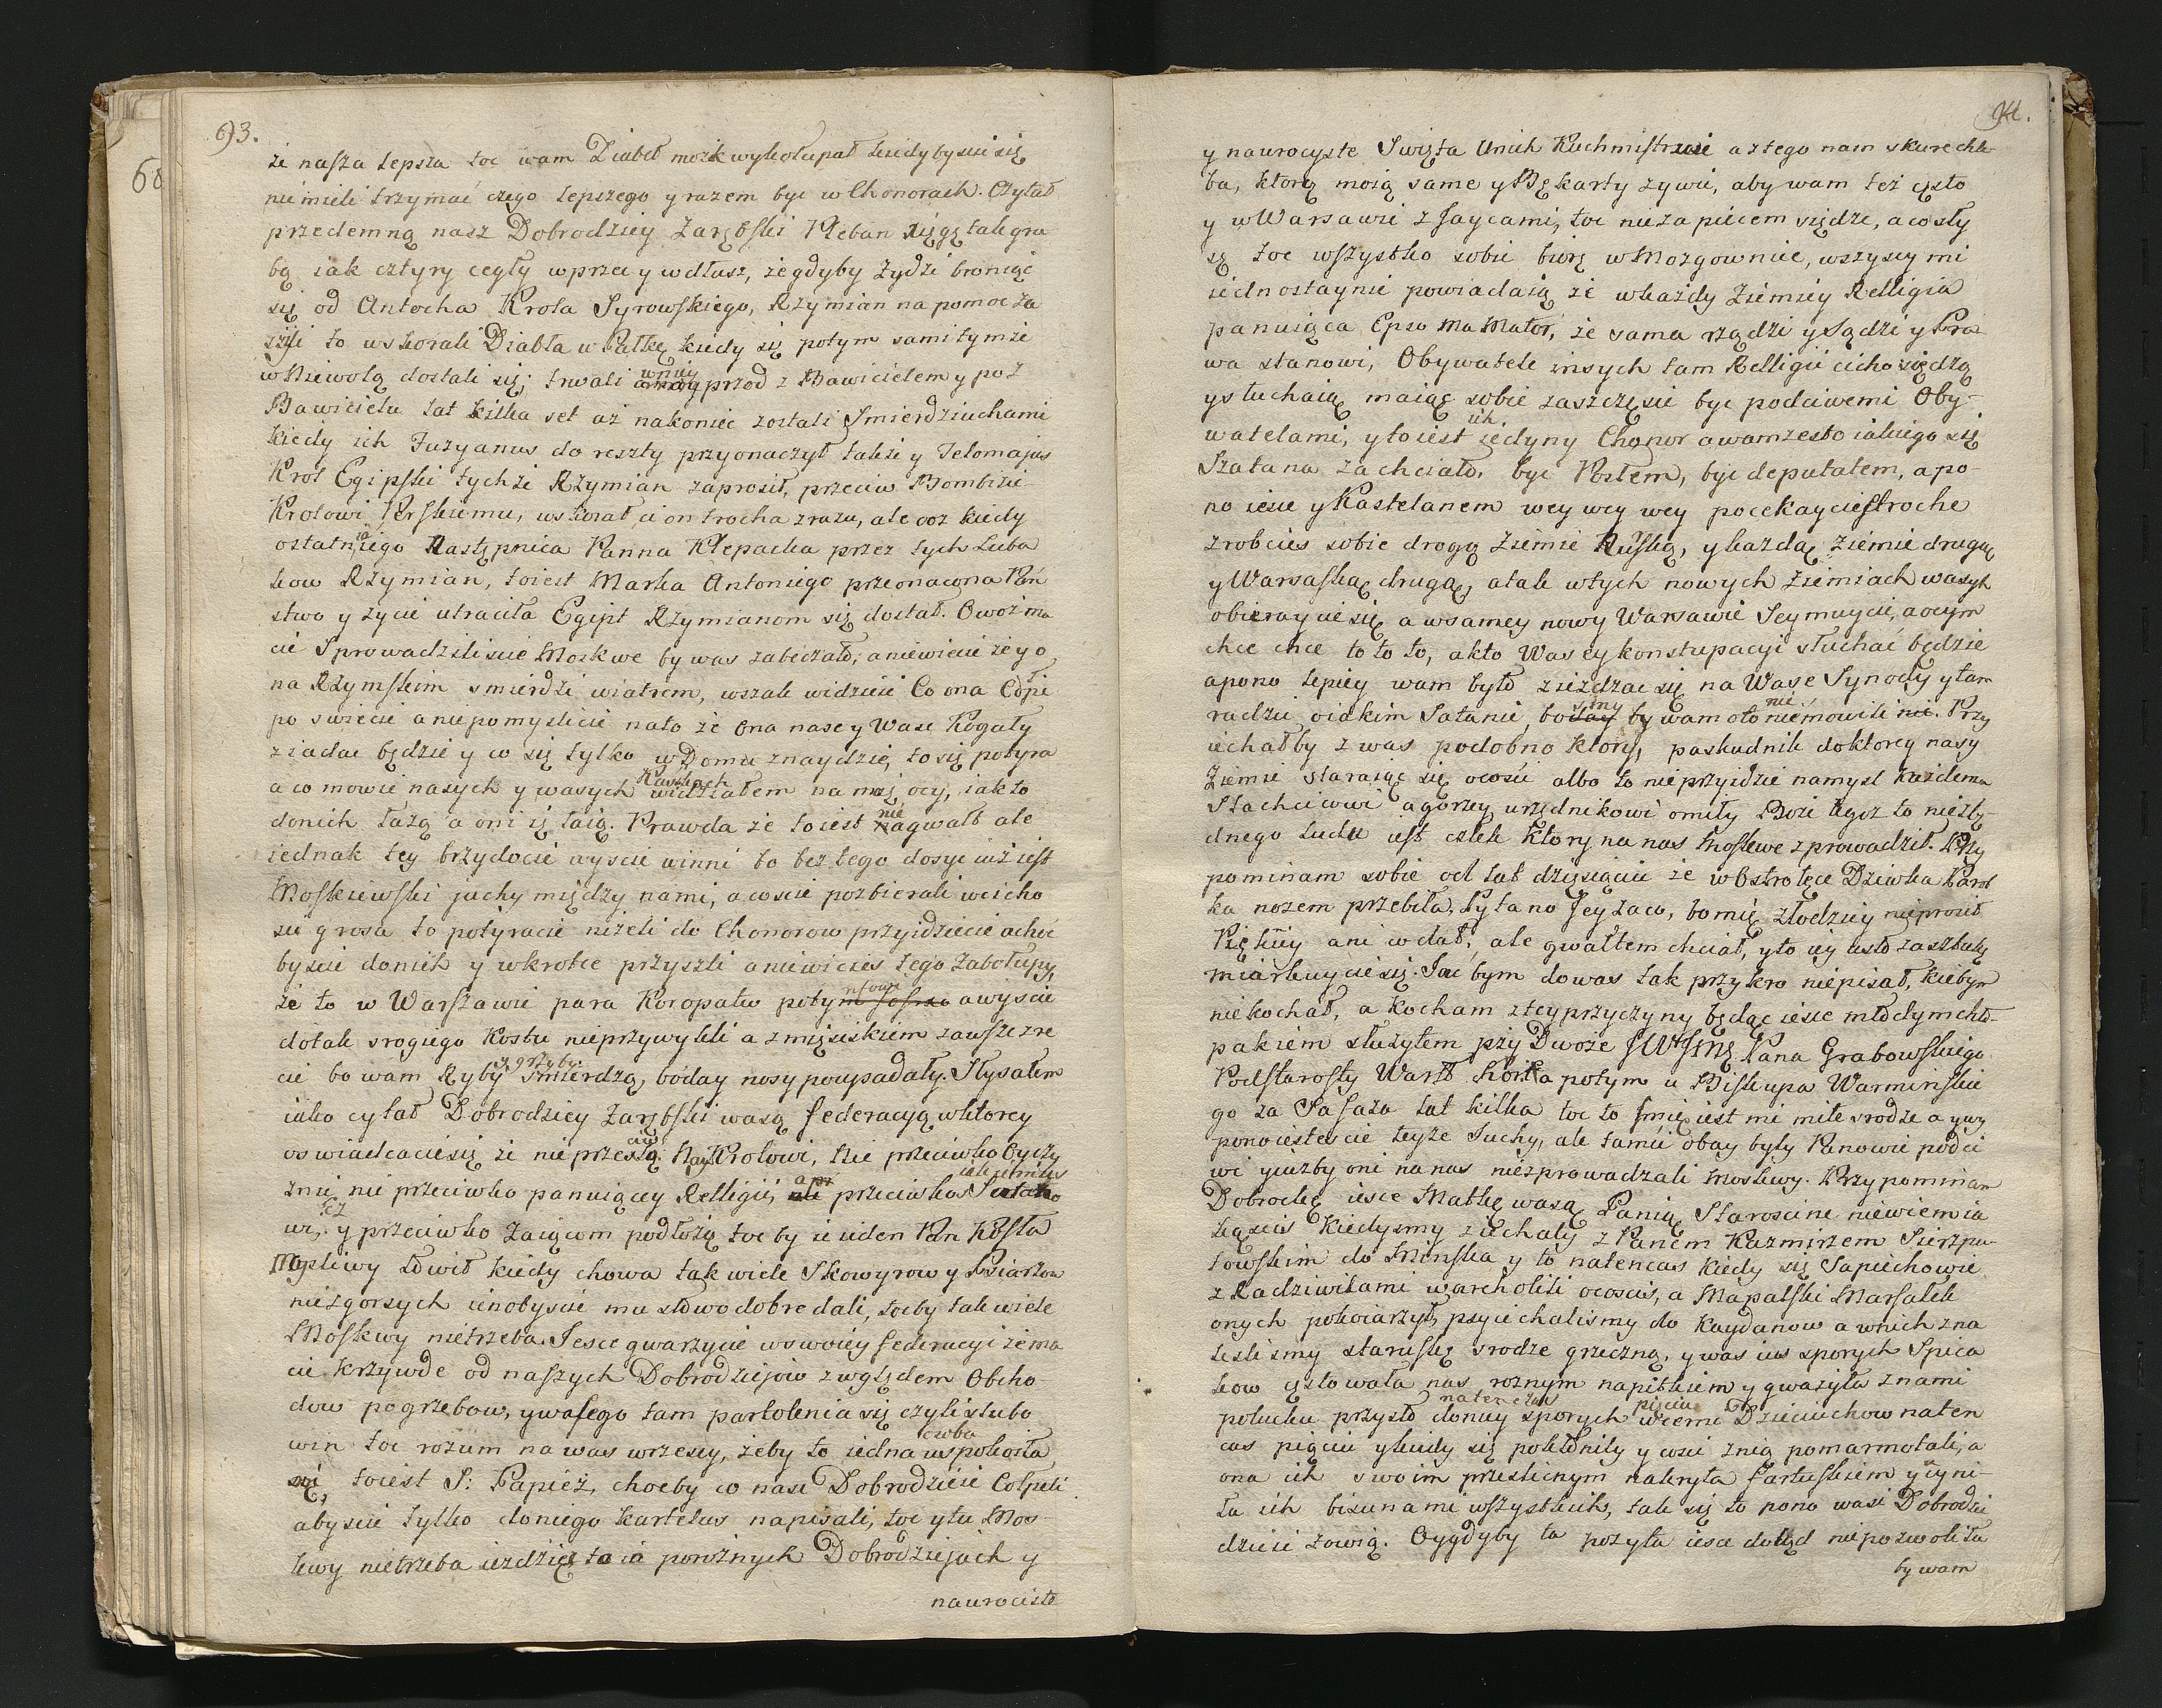 93.
że nasza lepsza toc wam Diabeł mozk wykołupał kiedybyscie się
niemieli trzymać czego lepszego y razem byc w Chonorach. Czytał
przedemną nasz Dobrodziey Zarębski Pleban xięgę tak gru
bą iak cztyry cegły wprzec y wdłusz, że gdyby Zydzi broniąc
się od Antocha Krola Syrowskiego, Rzymian na pomoc za
żyli to wskorali Diabła w Pałkę kiedy się potym samitymże
w Niewolą dostali się; trwali wniey przod z Bawicielem y po z
Bawicielu lat kilka set aż nakoniec zostali Smierdziuchami
kiedy ich Juzyanus do reszty przyonaczył takze y Telomajus
Krol Egipski tychże Rzymian zaprosił, przeciw Bombizie
Krolowi Perskiemu, wskorał ci on trocha zrazu, ale coz kiedy
ostatniego Następnica Panna Klepacka przez tych Luba
kow Rzymian, toiest Marka Antoniego przeonacona Pań
stwo y zycie utraciła Egipt Rzymianom się dostał. Owoz ma
cie Sprowadziliscie Moskwe by was zabiczało, a niewiecie że y o
na Rzymskim smierdzi wiatrem, wszak widzicie Co ona
po swiecie a niepomyslicie nato że ona nase y Wase Rogaty
ziadac będzie y co się tylko w Domu znaydzie, to się potyra
a co mowie nasych y wasych Kaskach widziałem na moj ocy, iak to
donich łażą a oni ij łaią. Prawda że to iest nie nagwałt ale
iednak tey brzydocie wyscie winni bo bez tego dosyc iuż iest
Moskiewski juchy między nami, a coscie pozbierali wcicho
sci grosa to potyracie niżeli do Chonorow przyidziecie achoc
byscie donich y wkrotce przyszli a niewicies tego zabołupy,
że to w Warszawie para Koropatw potym a wyscie
dotak srogiego Kostu nieprzywykli a zmięsiskiem zawsze zre
cie bo wam Ryby z grzyby Smierdzą, boday nosy poupadały. Słysałem
iako cytał Dobrodziey Zarębski wasą federacyą wktorey
oswiadcacie się że nieprzeciw Krolowi, Nie przeciwko Oyczy
znie nie przeciwko panuiącey Relligii, a przeciwko
wi, y przeciwko Zaiącom podłożą toc by ie ieden Pan Kosta
Mysliwy łowił kiedy chowa tak wiele Skowyrow y Psiarzow
niezgorszych ienobyscie mu słowo dobre dali, toby tak wiele
Moskwy nietrzeba. Jesce gwarzycie wswoiey federacyi że ma
cie krzywde od naszych Dobrodziejow zwględem Obcho-
dow pogrzebow, y wasego tam partolenia się czyli slubo
win toc rozum na was wrzescy, żeby to iedna osoba uspokoiła
się, toiest S: Papież, choeby co nase Dobrodzieie Colpeli
abyscie tylko doniego kartelus napisali, toc ytu Mos-
kwy nietrzeba iezdzięta ia poroznych Dobrodziejach y
naurociste
94.
y naurocyste Swięta Unich Kuchmistrzuie a z tego nam skure chle-
ba, ktorą moią same y Bękarty zywie, aby wam tez cęsto
y w Warsawie z Jaycami, toc nieza piecem siędze, a co sły
sę toc wszystko sobie biorę w Mozgownie, wszyscy mi
iednostaynie powiadaią że wkażdy Ziemiey Relligia
panuiąca Epso Ma Mator, że sama rządzi y Sądzi y Pra-
wa stanowi, Obywatele insych tam Relligii cicho siędzą
y słuchaią maiąc sobie zaszczęsie byc podciwemi Oby-
watelami, y toiest ich iedyny Chonor a wamzesto iakiego się
Szatana zachciało, byc Posłem, byc deputatem, a po-
no iesce y Kastelanem wey wey wey pocekaycies troche
zrobcies sobie drogę Ziemie Ruską, y kazdą Ziemie drugą
y Warsaską drugą, a tak wtych nowych Ziemiach wasych
obieraycie się a wsamey nowy Warsawie Seymuycie, a ocym
chce chce to to to, a kto Wasey konstupacyi słuchać będzie
a pono lepiey wam było zieżdzac się na Wase Synody y tam
radzic oiakim Satanie, bosmy by wam oto nic niemowili. Przy
iechałby z was podobno ktory, paskudnik doktorcy nasy
Ziemie staraiąc się ocosci albo to nieprzyidzie namysl kazdemu
Slachcicowi a gorzey urzędnikowi omiły Boże tegoz to niezły-
dnego ludu iest człek ktory na nas Moskwe zprowadził. Przy
pominam sobie od lat dzięsiąciu że w Ostrołęce Dziwka Parob
ka nozem przebiła, Pytano Jey zaco, bo mię złodziey nieprosił
Pięknij ani wdał, ale gwałtem chciał, yto iey usło zasztukę
miarkuycie się. Jac bym dowas tak przykro niepisał, kiebym
niekochał, a kocham z tey przyczyny będąc iesce młodym chło-
pakiem służyłem przy Dworze JWJmę Pana Grabowskiego
Podstarosty Wart potym u Biskupa Warminskie
go za Pasaza lat kilka toc to Jmie iest mi miłe srodze a y wy
ponoiestescie teyże Juchy, ale tamci obay byly Panowie podci
wi yiuzby oni na nas niezprowadzali Moskwy. Przypominam
Dobrockę iesce Matkę wasą Panią Starosciną niewiem ia
kąscis kiedysmy ziechały z Panem Kazmirzem Sierzpu-
towskim do Minska y to natencas kiedy się Sapiechowie
z Radziwiłami warcholili ocoscis, a Mapalski Marsałek
onych pokoiarzył, psyiechalismy do Kaydanow a wnich zna
leslismy staruskę srodze grzeczną, y was ius sporych Spica
kow cęstowała nas roznym napitkiem y gwazyła znami
poluku przysło doniey natenczas sporych pięciu Dzieciuchow naten
cas pięciu y kiedy się pokłoniły y cosci znią pomarmotali, a
ona ich swoim przeslicnym nakryta fartuskiem y cyni-
ła ich bisunami wszystkich, tak się to pono wasi Dobrodzi
dzieie zowią. Oy gdyby ta pozyła iesce dotąd niepozwoliła
by wam